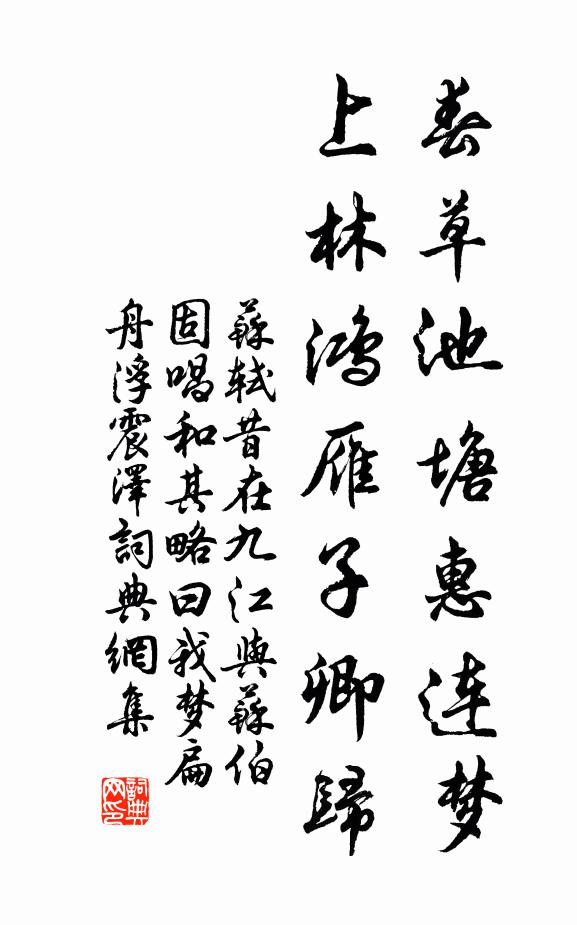 春草池塘惠连梦
上林鸿雁子卿歸
蘇軾昔在九江與蘇伯
固唱和其略曰我梦扁
舟浮震澤詞典網集
詞典
网印